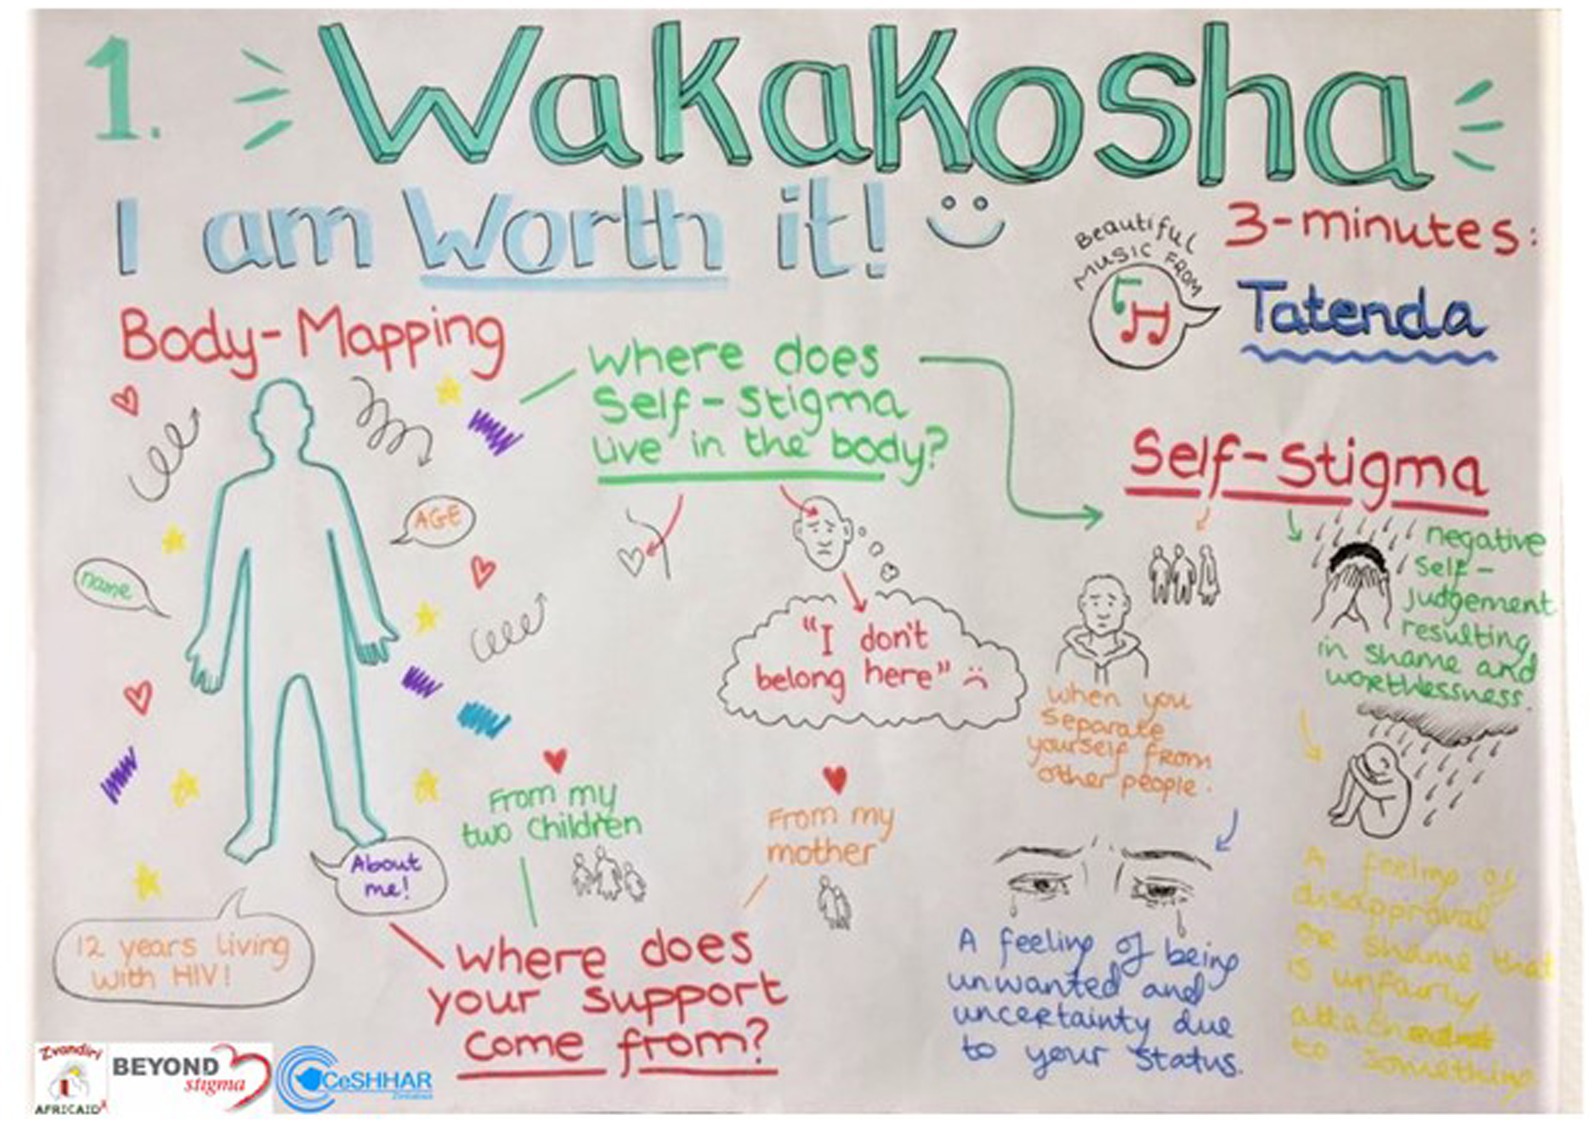 1.
Wakakosha
I am Worth it!
Beautiful
Music From
3-minutes:
Tatenda
Body-Mapping
AGE
name
Where does
Self-Stigma
live in the body?
"I don't
belong here"
Self-Stigma
when you
separate
yourself from
other people.
negative
self-
judgement
resulting
in shame and
worthlessness.
A feeling of being
unwanted and
uncertainty due
to your status.
A feeling of
disapproval
or shame that
is unfairly
attached
to something
From my
two children
From my
mother
About
me!
12 years living
with HIV!
Where does
your support
come from?
Zvandiri
AFRICAID
BEYOND
stigma
CeSHHAR
Zimbabwe